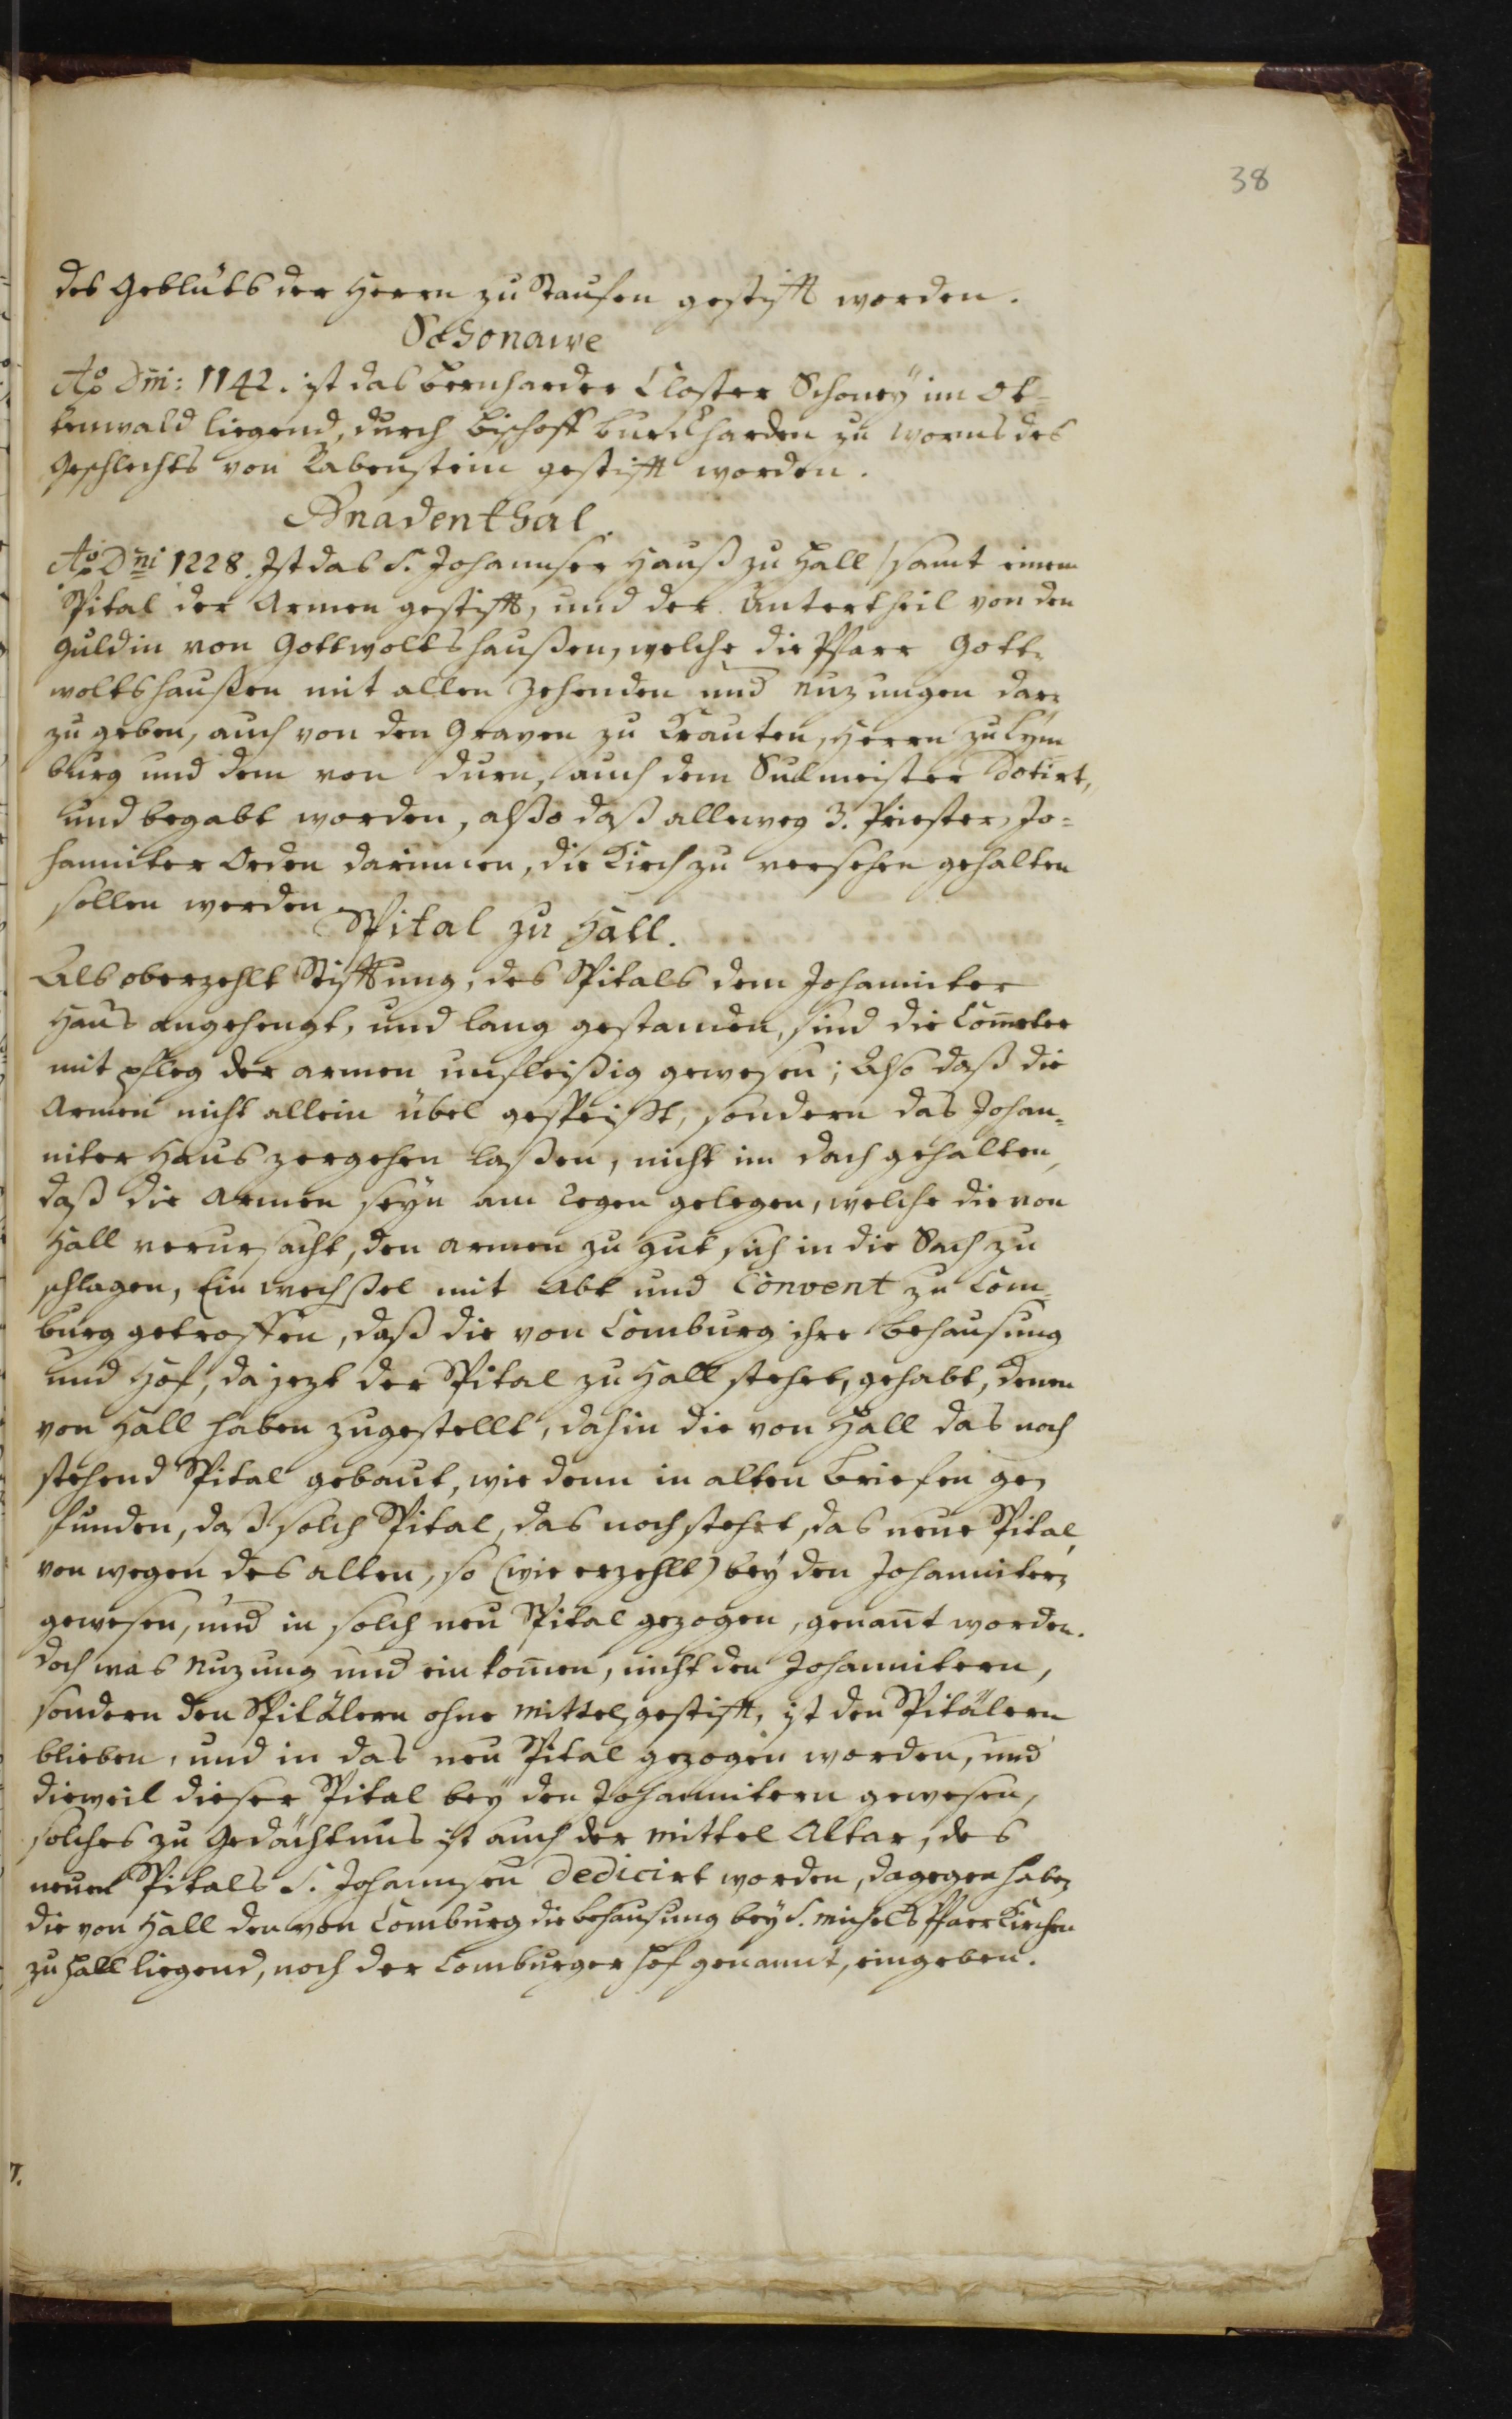 38
des Geblüts der Herrn zu Staufen gestifft worden.
Schonawe
Ao Dni: 1142. ist das Bernharder Closter Schoney im Ot=
tenwald liegend, durch Bischoff Burckharden zu Worms des
Geschlechts von Rabenstein gestifft worden.
Gnadenthal.
Ao Dni 1228. Ist das S. Johannser Hauß zu Hall / samt einem
Spital der Armen gestifft, und der Untertheil von den
Guldin von Gottwoltshaußen, welche die Pfarr Gott=
woltshaußen mit allen Zehenden und nuzungen dar=
zu geben, auch von den Graven zu Krauten, Herrn zu Lym
burg und dem von Durn, auch dem Sulmeister dotirt,
und begabt worden, also daß alleweg 3. Priester, Jo=
hanniter Orden darinnen, die Kirch zu versehen gehalten
sollen werden
Spital zu Hall.
Als oberzehlt Stifftung, des Spitals dem Johanniter
Haus angehengt, und lang gestanden, sind die Com̄eter
mit pfleg der armen unfleißig gewesen; Also daß die
Armen nicht allein übel gespeißt, sondern das Johan=
niter Haus zergehen laßen, nicht im dach gehalten,
daß die Armen seyn am Regen gelegen, welche die von
Hall verursacht, den armen zu gut, sich in die Sach zu
schlagen, Ein wechßel mit Abt und Convent zu Com=
burg getroffen, daß die von Comburg ihre behausung
und Hof, da jezt der Spital zu Hall stehet, gehabt, denen
von Hall haben zugestellt, dahin die von Hall das noch
stehend Spital gebaut, wie denn in alten Briefen ge=
funden, daß solch Spital, das noch stehet, das neue Spital,
von wegen des alten, so (wie erzehlt) bey den Johanniter=
gewesen, und in solch neu Spital gezogen, genan̄t worden.
doch was nuzung und einkom̄en, nicht den Johannitern,
sondern den Spitälern ohne mittel gestifft, ist den Spitälern
blieben, und in das neu Spital gezogen worden, und
dieweil dieser Spital bey den Johannitern gewesen,
solches zu Gedächtnus ist auch der mittel Altar, des
neuen Spitals S. Johannsen dedicirt worden, dagegen haben
die von Hall den von Comburg die behausung bey S. Michels Pfarrkirchen
zu Hall liegend, noch der Comburger Hof genannt, eingeben.